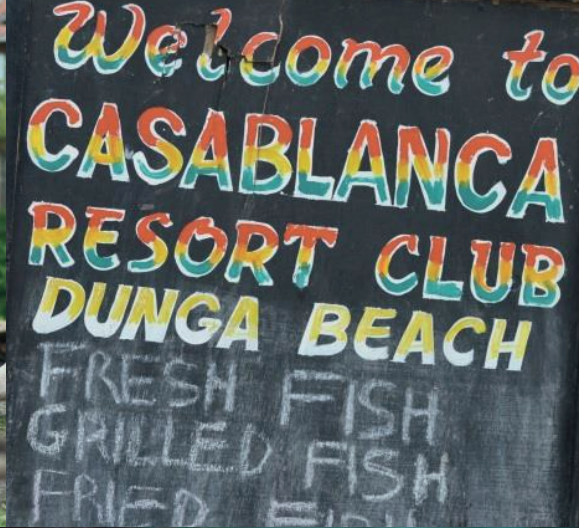 Welcome to
CASABLANCA
RESORT CLUB
DUNGA BEACH
FRESH FISH
GRILLED FISH
FRIED FISH